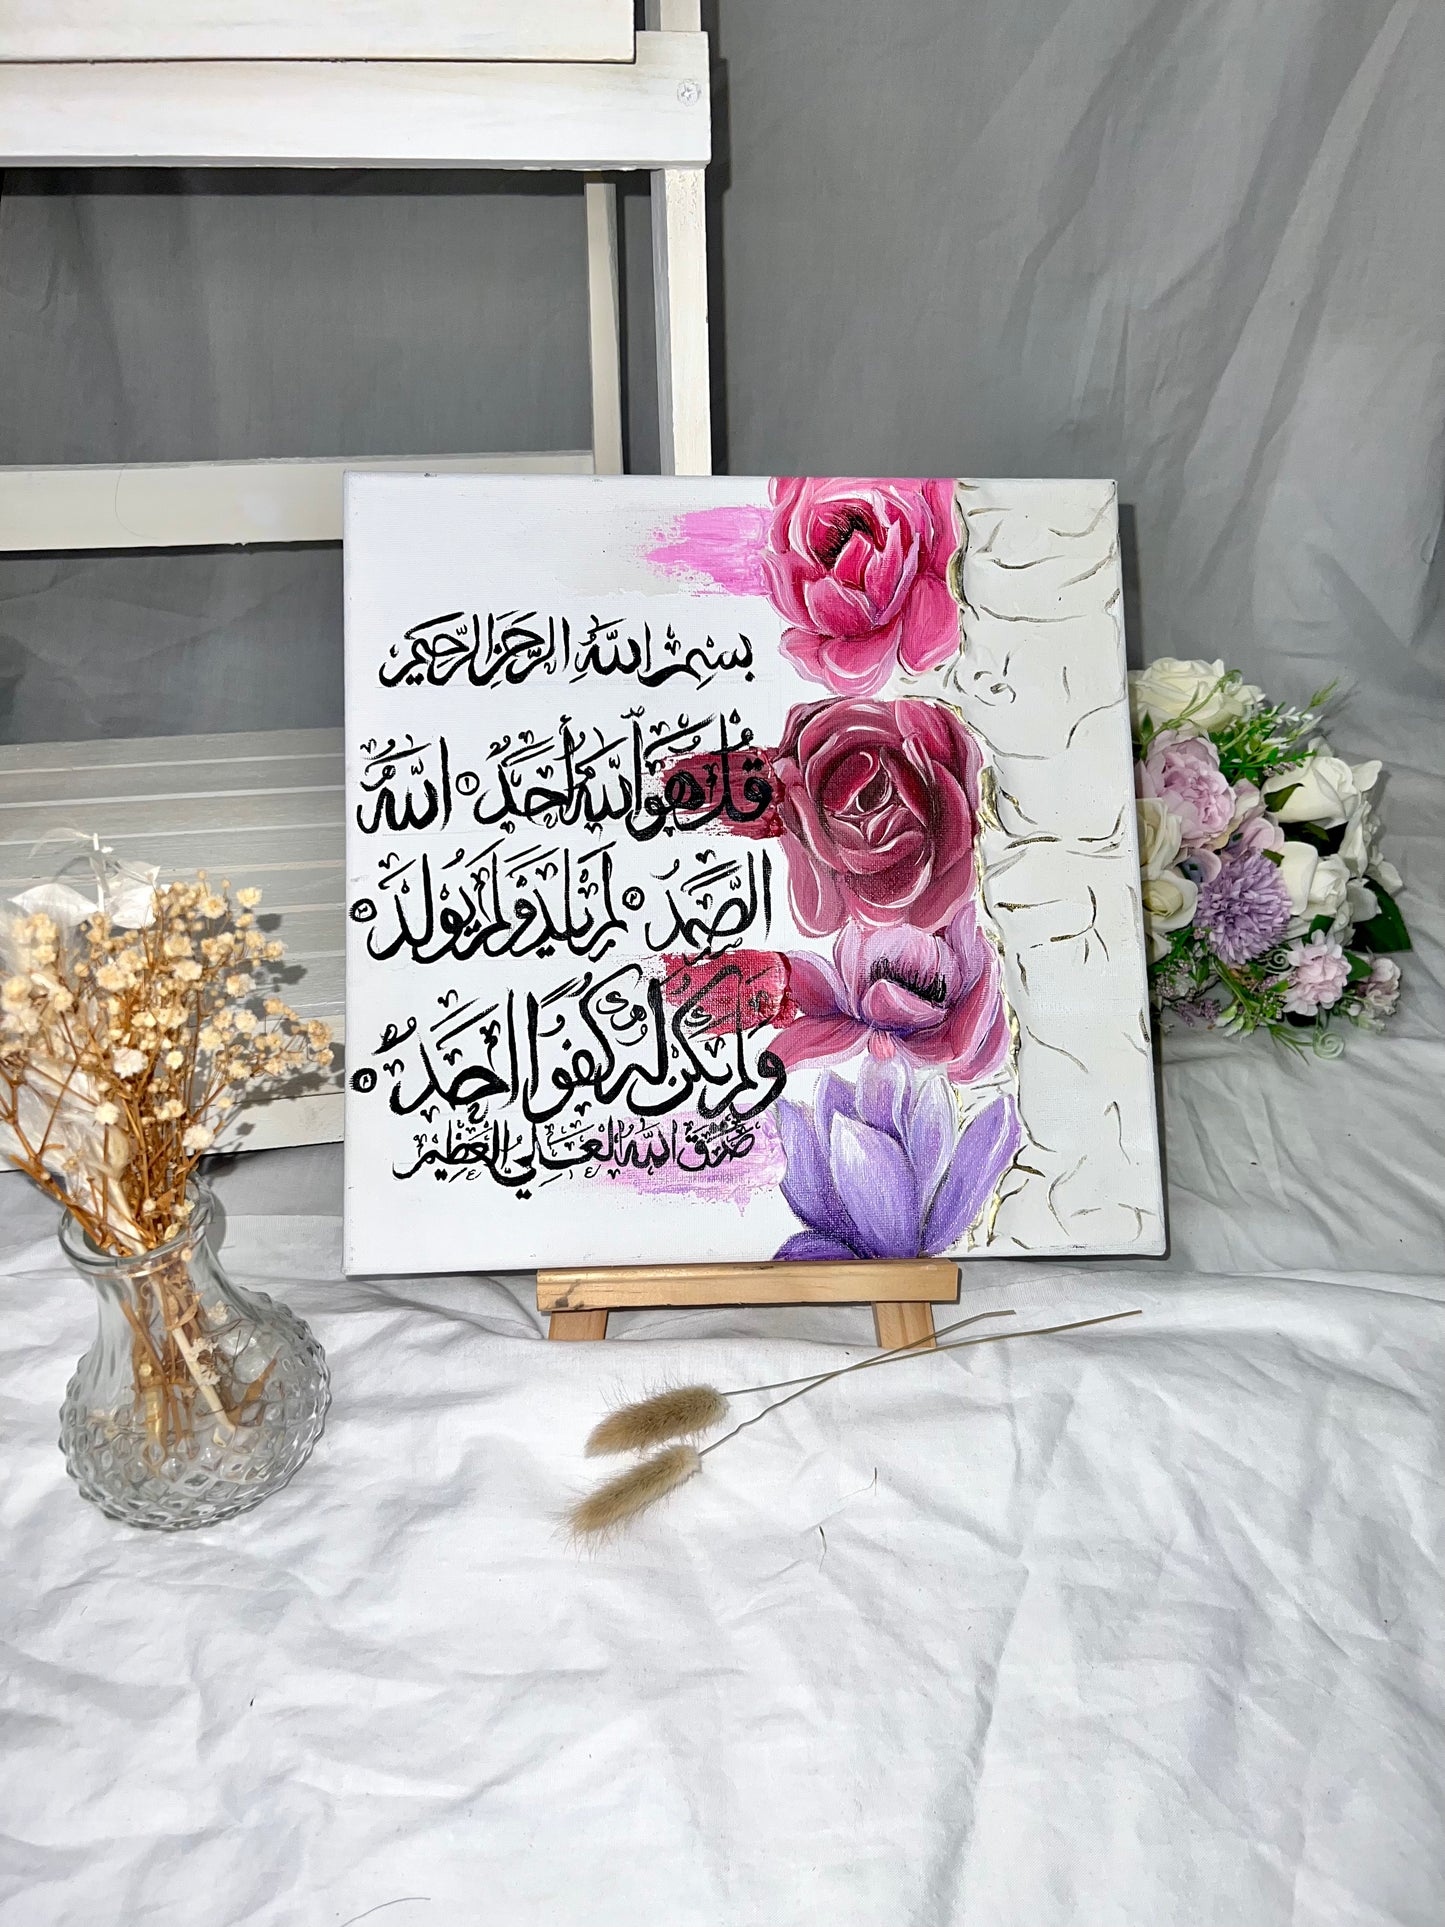 بِسْمِ اللَّهِ الرَّحْمَنِ الرَّحِيمِ
قُلْ هُوَ اللَّهُ أَحَدٌ ١ اللَّهُ
الصَّمَدُ ٢ لَمْ يَلِدْ وَلَمْ يُولَدْ ٣
وَلَمْ يَكُنْ لَهُ كُفُوًا أَحَدٌ
صَدَقَ اللَّهُ الْعَلِيُّ الْعَظِيمُ